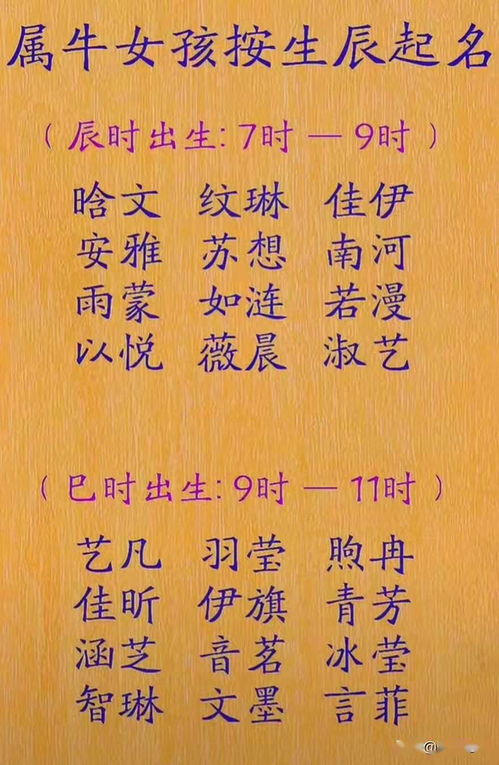 属牛女孩按生辰起名
（辰时出生:7时 — 9时）
晗文 纹琳 佳伊
安雅 苏想 南河
雨蒙 如涟 若漫
以悦 薇晨 淑艺
（巳时出生:9时 — 11时）
艺凡 羽莹 煦冉
佳昕 伊旗 青芳
涵芝 音茗 冰莹
智琳 文墨 言菲
@